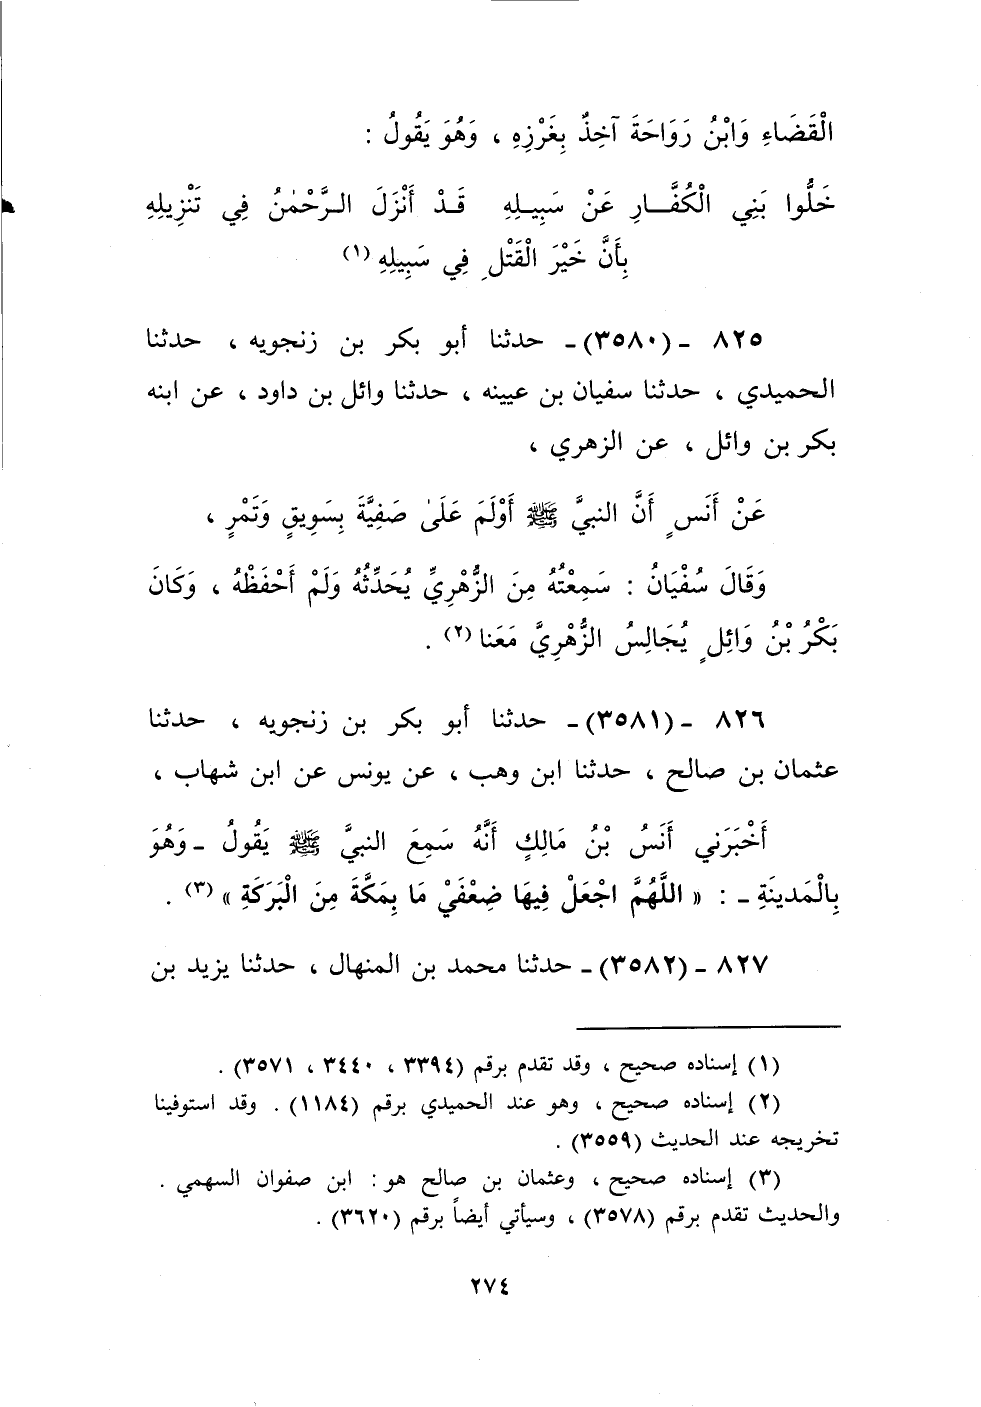 الْقَضَاءِ وَابْنُ رَوَاحَةَ آخِذٌ بِغَرْزِهِ ، وَهُوَ يَقُولُ :
خَلُّوا بَنِي الْكُفَّـــارِ عَنْ سَبِيـلِهِ قَـدْ أَنْزَلَ الـرَّحْمٰنُ فِي تَنْزِيلِهِ
بِأَنَّ خَيْرَ الْقَتْلِ فِي سَبِيلِهِ (١)
٨٢٥ ـ (٣٥٨٠) ـ حدثنا أبو بكر بن زنجويه ، حدثنا
الحميدي ، حدثنا سفيان بن عيينه ، حدثنا وائل بن داود ، عن ابنه
بكر بن وائل ، عن الزهري ،
عَنْ أَنَسٍ أَنَّ النبيَّ ﷺ أَوْلَمَ عَلَىٰ صَفِيَّةَ بِسَوِيقٍ وَتَمْرٍ ،
وَقَالَ سُفْيَانُ : سَمِعْتُهُ مِنَ الزُّهْرِيِّ يُحَدِّثُهُ وَلَمْ أَحْفَظْهُ ، وَكَانَ
بَكْرُ بْنُ وَائِلٍ يُجَالِسُ الزُّهْرِيَّ مَعَنا (٢) .
٨٢٦ ـ (٣٥٨١) ـ حدثنا أبو بكر بن زنجويه ، حدثنا
عثمان بن صالح ، حدثنا ابن وهب ، عن يونس عن ابن شهاب ،
أَخْبَرَني أَنَسُ بْنُ مَالِكٍ أَنَّهُ سَمِعَ النبيَّ ﷺ يَقُولُ ـ وَهُوَ
بِالْمَدينَةِ ـ : « اللَّهُمَّ اجْعَلْ فِيهَا ضِعْفَيْ مَا بِمَكَّةَ مِنَ الْبَرَكَةِ » (٣) .
٨٢٧ ـ (٣٥٨٢) ـ حدثنا محمد بن المنهال ، حدثنا يزيد بن
(١) إسناده صحيح ، وقد تقدم برقم (٣٣٩٤ ، ٣٤٤٠ ، ٣٥٧١) .
(٢) إسناده صحيح ، وهو عند الحميدي برقم (١١٨٤) . وقد استوفينا
تخريجه عند الحديث (٣٥٥٩) .
(٣) إسناده صحيح ، وعثمان بن صالح هو : ابن صفوان السهمي .
والحديث تقدم برقم (٣٥٧٨) ، وسيأتي أيضاً برقم (٣٦٢٠) .
٢٧٤